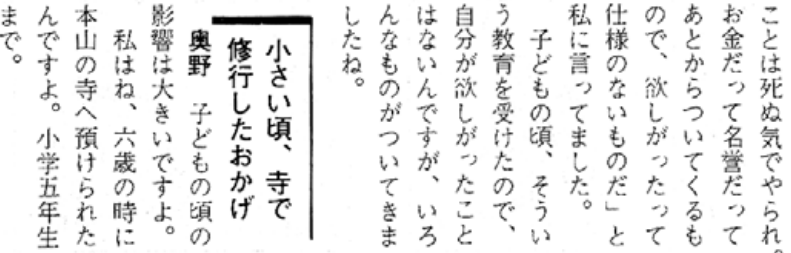 ことは死ぬ気でやられ。
お金だって名誉だって
あとからついてくるも
ので、欲しがったって
仕様のないものだ」と
私に言ってました。
子どもの頃、そうい
う教育を受けたので、
自分が欲しがったこと
はないんですが、いろ
んなものがついてきま
したね。
小さい頃、寺で
修行したおかげ
奥野　子どもの頃の
影響は大きいですよ。
私はね、六歳の時に
本山の寺へ預けられた
んですよ。小学五年生
まで。